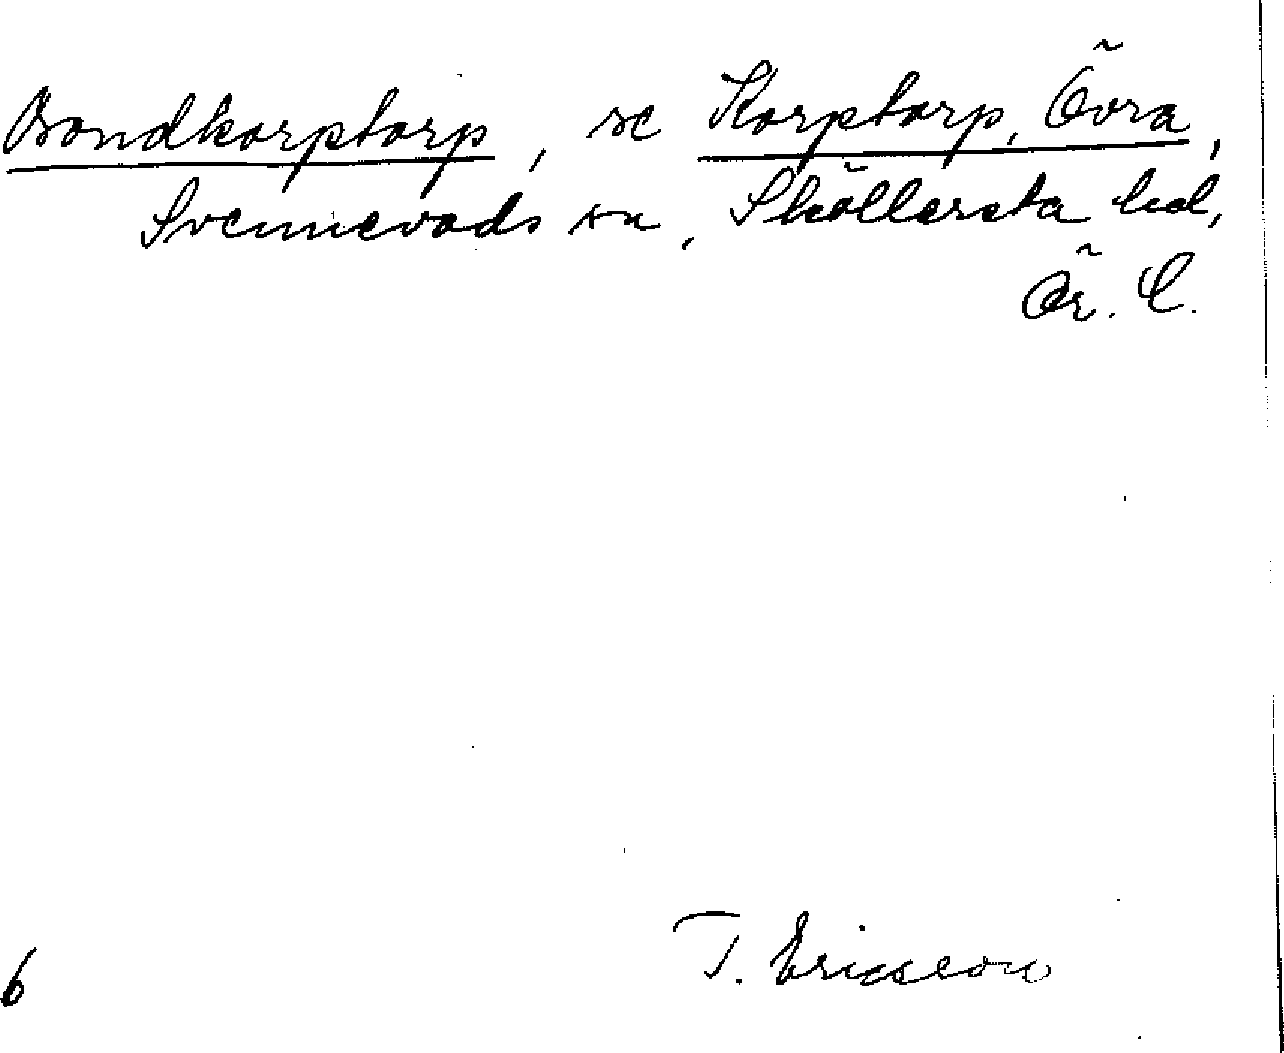 Bondkorptorp, se Korptorp, Övra,
Svennevads sn, Sköllersta hd,
Ör. l.
T. Ericsson
6